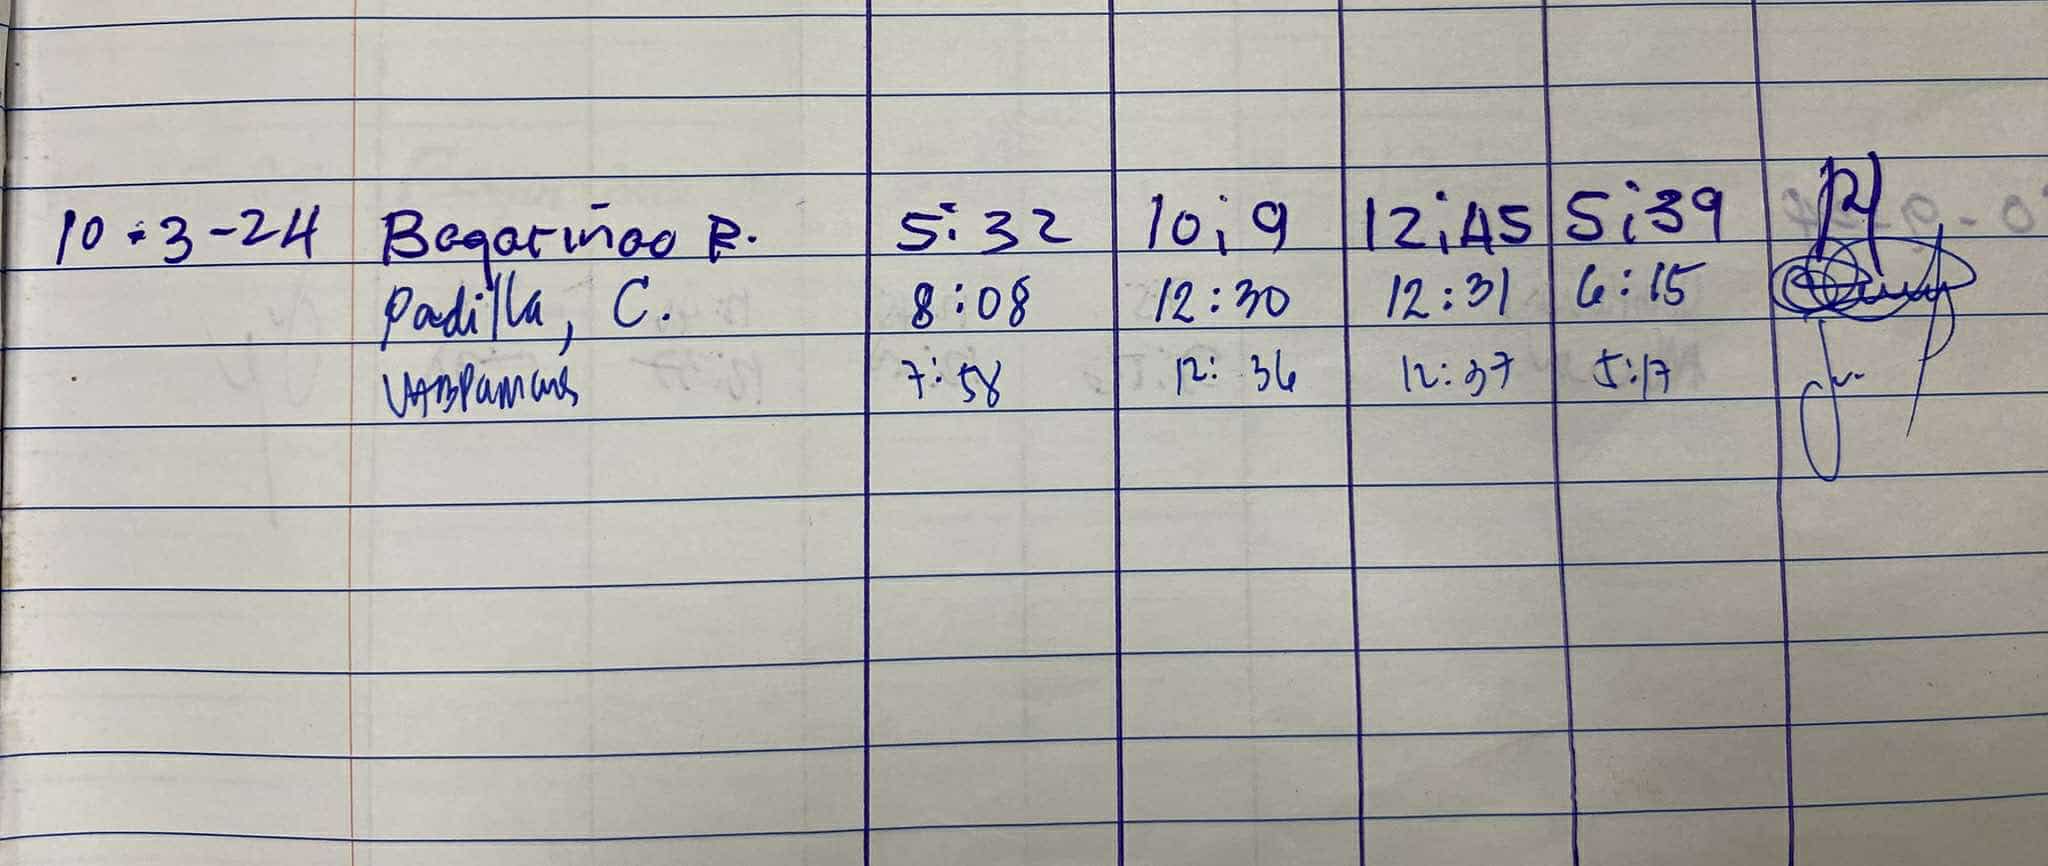 10-3-24 Bagariñao R. 5:32 10;9 12;45 5;39
Padilla, C. 8:08 12:30 12:31 6:15
7:58 12:36 12:37 5:17